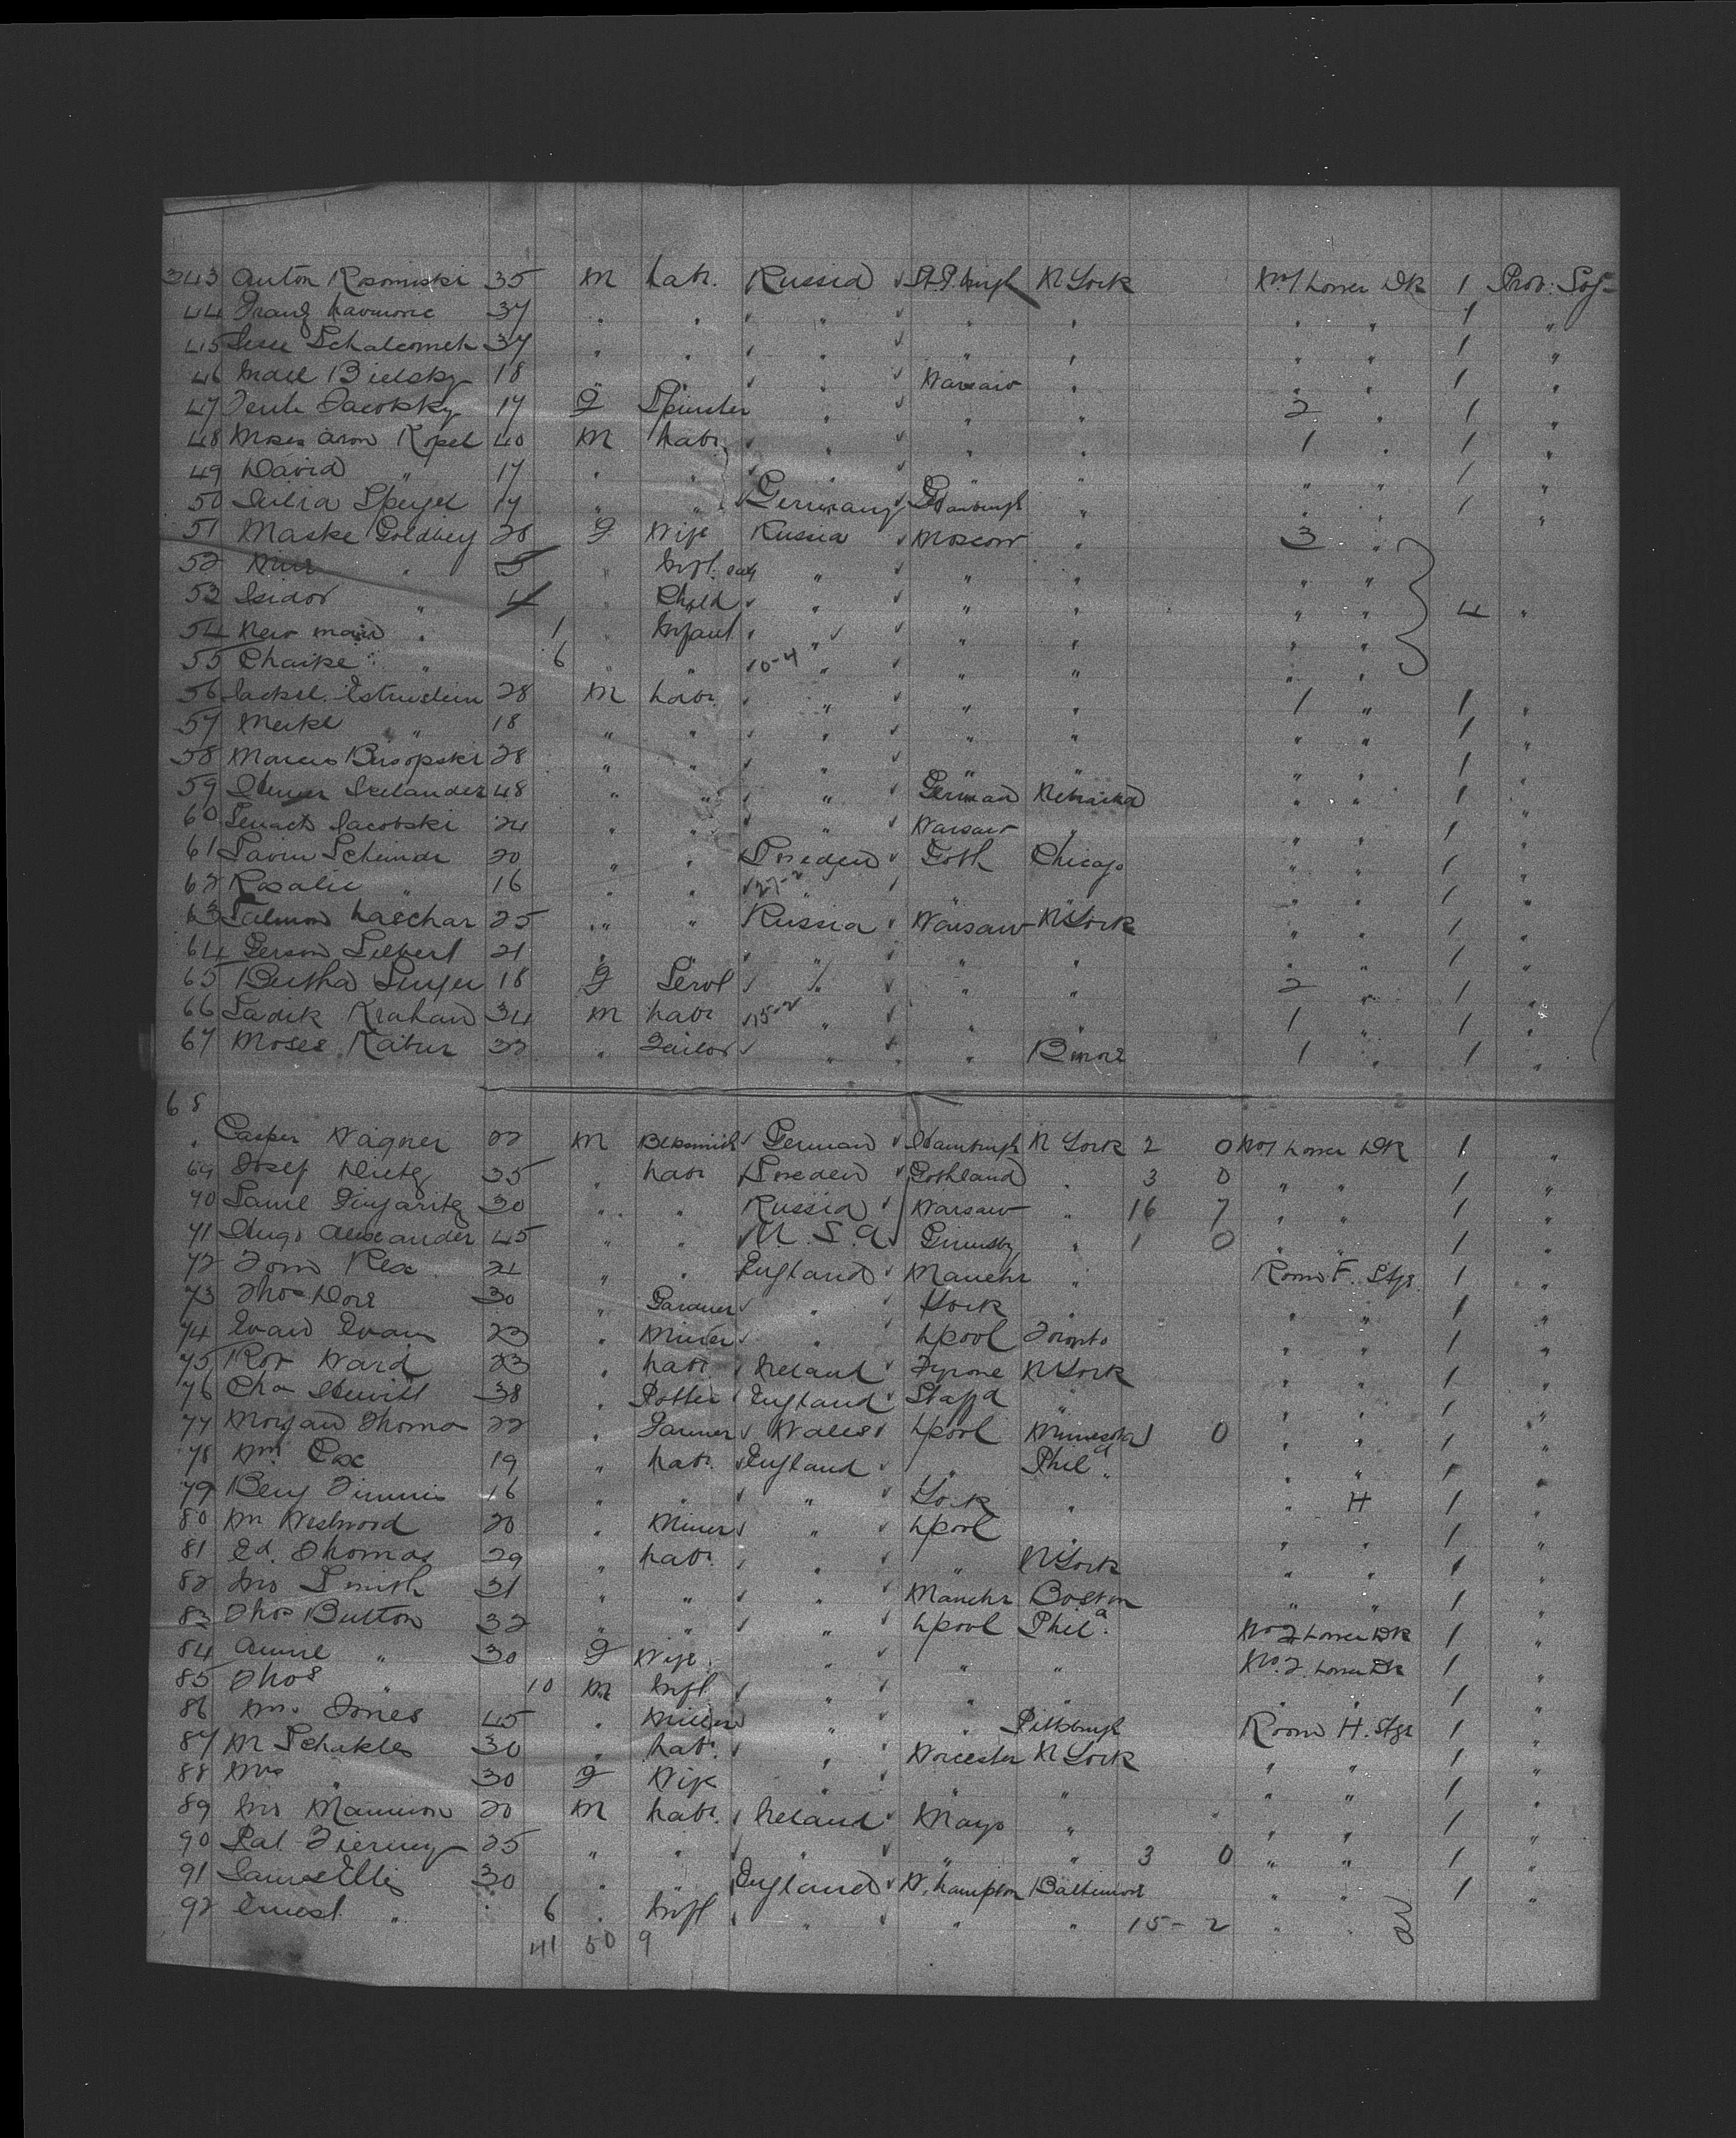 343 Anton Rosomiski 35 M Labr. Russia ✓ St. P.burgh N York No 1 Lower Dk 1 Prov: Soj-
44 Franz 37 " " " ✓ " " " " 1 "
45 37 " " ✓ " ✓ " " " " 1 "
46 Bielsky 18 " " ✓ " ✓ Warsaw " " " 1 "
47 17 F Spinster " ✓ " " 2 " 1 "
48 Moses Aron Kopel 40 M Labr ✓ " ✓ " " 1 " 1 "
49 David " 17 " " ✓ " ✓ " " " " 1 "
50 Speigel 17 " " ✓ Germany ✓ " " " 1 "
51 Maske Goldbey 28 F Wife Russia ✓ Moscow " 3 "
52 " 5 " Infl. " " " " "
53 Isidor " 4 " Child ✓ " ✓ " " " " 4 "
54 " 1 " Infant ✓ " ✓ " " " "
55 Chaike " 6 " " ✓ 0-4 " ✓ " " " "
56 28 M Labr. ✓ " ✓ " " 1 " 1 "
57 Merkl " 18 " " ✓ " ✓ " " " " 1 "
58 Marcus 28 " " ✓ " ✓ " " " " 1 "
59 48 " " ✓ " ✓ German Nebraska " " 1 "
60 Jacobski 24 " " ✓ " ✓ Warsaw " " " 1 "
61 20 " " Sweden ✓ Goth Chicago " " 1 "
62 Rosalie " 16 " " ✓ 27-2 " ✓ " " " " 1 "
63 25 " " Russia ✓ Warsaw N York " " 1 "
64 Gerson 21 " " " ✓ " " " " 1 "
65 Bertha 18 F Servt ✓ " ✓ " " 2 " 1 "
66 Sadik Krahan 34 M Labr ✓ 15-2 " ✓ " " 1 " 1 "
67 Moses Kabur 32 " Tailor ✓ " ✓ " Bmore 1 " 1 "
68
" Casper Wagner 22 M Blksmith ✓ German ✓ Hamburgh N York 2 0 No 1 Lower Dk 1 "
69 Josef Dietz 35 " Labr Sweden ✓ Gothland " 3 0 " " 1 "
70 30 " " Russia ✓ Warsaw " 16 7 " " 1 "
71 Hugo Alexander 45 " " U.S.A. ✓ Grimsby " 1 0 " " 1 "
72 Tom Rea 21 " " England ✓ Manchr " Room F. Stge 1 "
73 Thos Dore 30 " Gardner ✓ " ✓ York " " " 1 "
74 Evan Evans 23 " Miner ✓ " ✓ Lpool Toronto " " 1 "
75 Robt Ward 23 " Labr ✓ Ireland ✓ Tyrone N York " " 1 "
76 Chas Hewitt 38 " Potter ✓ England ✓ Staffd " " " 1 "
77 Morgan Thomas 22 " Farmer ✓ Wales ✓ Lpool Minnesota 1 0 " " 1 "
78 Wm Cox 19 " Labr. ✓ England ✓ " Phila " " 1 "
79 Benj Timmis 16 " " ✓ " ✓ York " " H 1 "
80 Wm Westwood 20 " Miner ✓ " ✓ Lpool " " " 1 "
81 Ed. Thomas 29 " Labr. ✓ " ✓ " N York " " 1 "
82 Jno Smith 31 " " ✓ " ✓ Manchr Boston " " 1 "
83 Thos Button 32 " " ✓ " ✓ Lpool Phila. No 2 Lower Dk 1 "
84 Annie " 30 F Wife " ✓ " " No. 2. Lower Dk 1 "
85 Thos " 10 M Infl ✓ " ✓ " " " " 1 "
86 Wm. Jones 45 " " ✓ " Pittsburgh Room H. Stge 1 "
87 W Schakles 30 " Labr. ✓ " ✓ Worcester N York " " 1 "
88 Mrs " 30 F Wife " ✓ " " " " 1 "
89 Jno Mannion 20 M Labr. ✓ Ireland ✓ Mayo " " " 1 "
90 Pat. Tierney 25 " " ✓ " ✓ " " 3 0 " " 1 "
91 James Ellis 30 " " England ✓ W.hampton Baltimore " " 1 "
92 Ernest " 6 " Infl ✓ " ✓ " " 15-2 " "
41 50 9